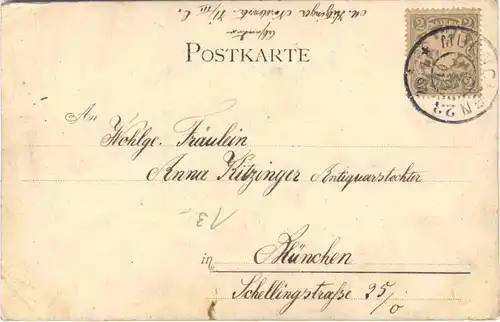 Absender
POSTKARTE
2
2
MÜNCHEN 23
An
Wohlge. Fräulein
Anna Kitzinger Antiquarstochter
13.-
in München
Schellingstraße 25/0